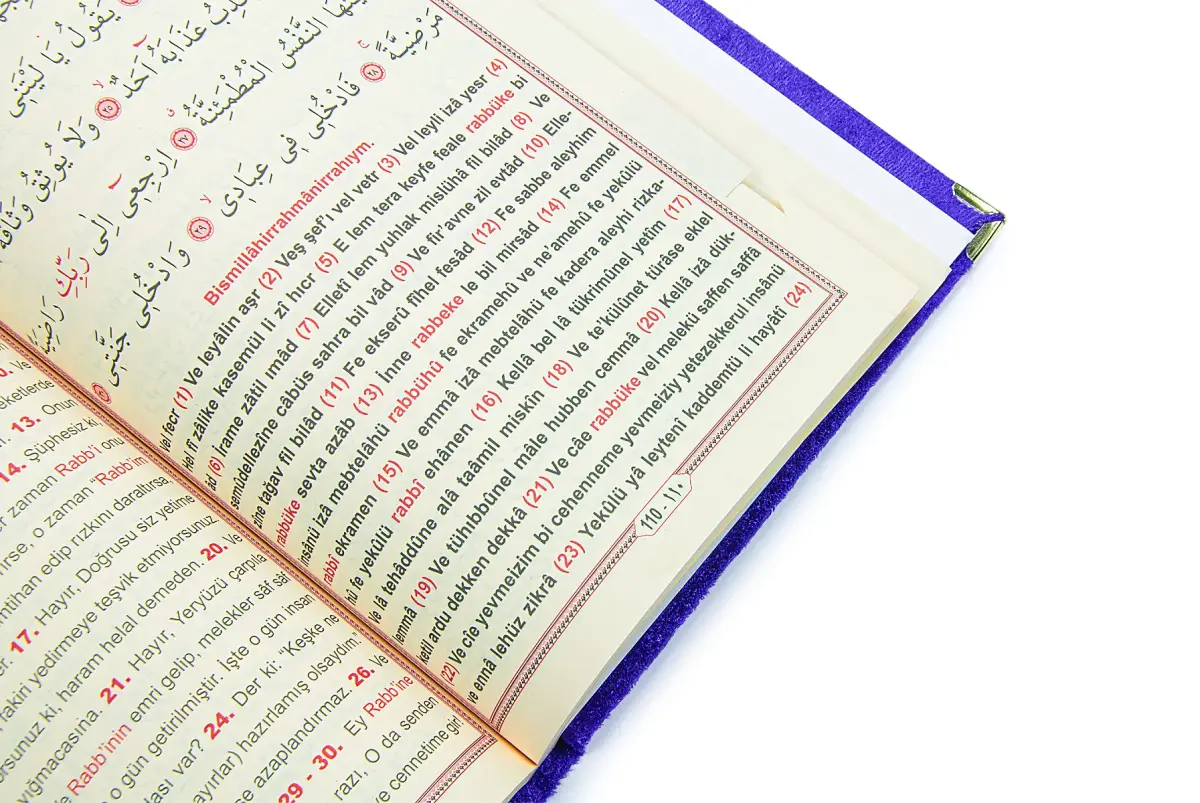 يَقُولُ يَا لَيْتَنِى
عَذَابَهُٓ اَحَدٌۙ ﴿٢٥﴾ وَلَا يُوثِقُ وَثَاقَهُٓ
النَّفْسُ الْمُطْمَئِنَّةُۗ ﴿٢٧﴾ اِرْجِعِٓى اِلٰى رَبِّكِ رَاضِيَةً
مَرْضِيَّةًۚ ﴿٢٨﴾ فَادْخُلِى فِى عِبَادِىۙ ﴿٢٩﴾ وَادْخُلِى جَنَّتِى ﴿٣٠﴾
Bismillâhirrahmânirrahıym.
Vel fecr (1) Ve leyâlin aşr (2) Veş şef'ı vel vetr (3) Vel leyli izâ yesr (4)
Hel fî zâlike kasemül li zî hıcr (5) E lem tera keyfe feale rabbüke bi
âd (6) İrame zâtil ımâd (7) Elletî lem yunlak mislühâ fil bilâd (8) Ve
semûdellezîne câbüs sahra bil vâd (9) Ve fir'avne zil evtâd (10) Elle-
zîne tağav fil bilâd (11) Fe ekserû fîhel fesâd (12) Fe sabbe aleyhim
rabbüke sevta azâb (13) İnne rabbeke le bil mirsâd (14) Fe emmel
insânü izâ mebtelâhü rabbühû fe ekramehû ve ne'amehû fe yekûlü
rabbî ekramen (15) Ve emmâ izâ mebtelâhü fe kadera aleyhi rizka-
hû fe yekûlü rabbî ehânen (16) Kellâ bel lâ tükrimûnel yetîm (17)
Ve lâ tehâddûne alâ taâmil miskîn (18) Ve te'külûnet türâse eklel
lemmâ (19) Ve tühıbbûnel mâle hubben cemmâ (20) Kellâ izâ dük-
ketil ardu dekken dekkâ (21) Ve câe rabbüke vel melekü saffen saffâ
(22) Ve cîe yevmeizim bi cehenneme yevmeiziy yetezekkerul insânü
ve ennâ lehüz zikrâ (23) Yekûlü yâ leytenî kaddemtü li hayâtî (24)
110 - ١١٠
13. Onun
14. Şüphesiz ki
zaman Rabb'i onu
o zaman "Rabb'im
imtihan edip rızkını daraltırsa,
17. Hayır, Doğrusu siz yetime
fakiri yedirmeye teşvik etmiyorsunuz.
ki, haram helal demeden. 20. Ve
yığmacasına. 21. Hayır, Yeryüzü çarpıla
Rabb'inin emri gelip, melekler sâf sâf
o gün getirilmiştir. İşte o gün insan
var? 24. Der ki: "Keşke ne
hazırlamış olsaydım".
azaplandırmaz. 26. Ve
29 - 30. Ey Rabb'ine
razı, O da senden
ve cennetime gir!